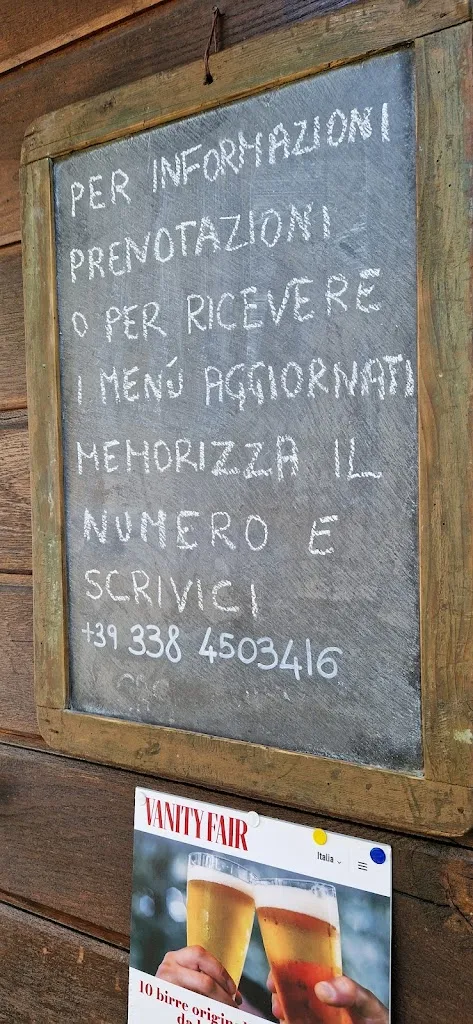 PER INFORMAZIONI
PRENOTAZIONI
O PER RICEVERE
I MENÚ AGGIORNATI
MEMORIZZA IL
NUMERO E
SCRIVICI
+39 338 4503416
VANITY FAIR
Italia
10 birre origin